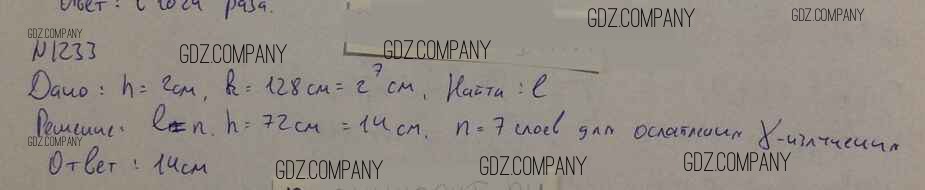 Ответ: в 1024 раза.
GDZ.COMPANY GDZ.COMPANY
GDZ.COMPANY
N1233 GDZ.COMPANY GDZ.COMPANY
Дано: h = 2см, k = 128 см = 2⁷ см, Найти: l
GDZ.COMPANY GDZ.COMPANY GDZ.COMPANY
Решение: l = n. h = 72см = 14 см, n = 7 слоев для ослабления γ-излучения
GDZ.COMPANY
Ответ: 14см GDZ.COMPANY GDZ.COMPANY GDZ.COMPANY